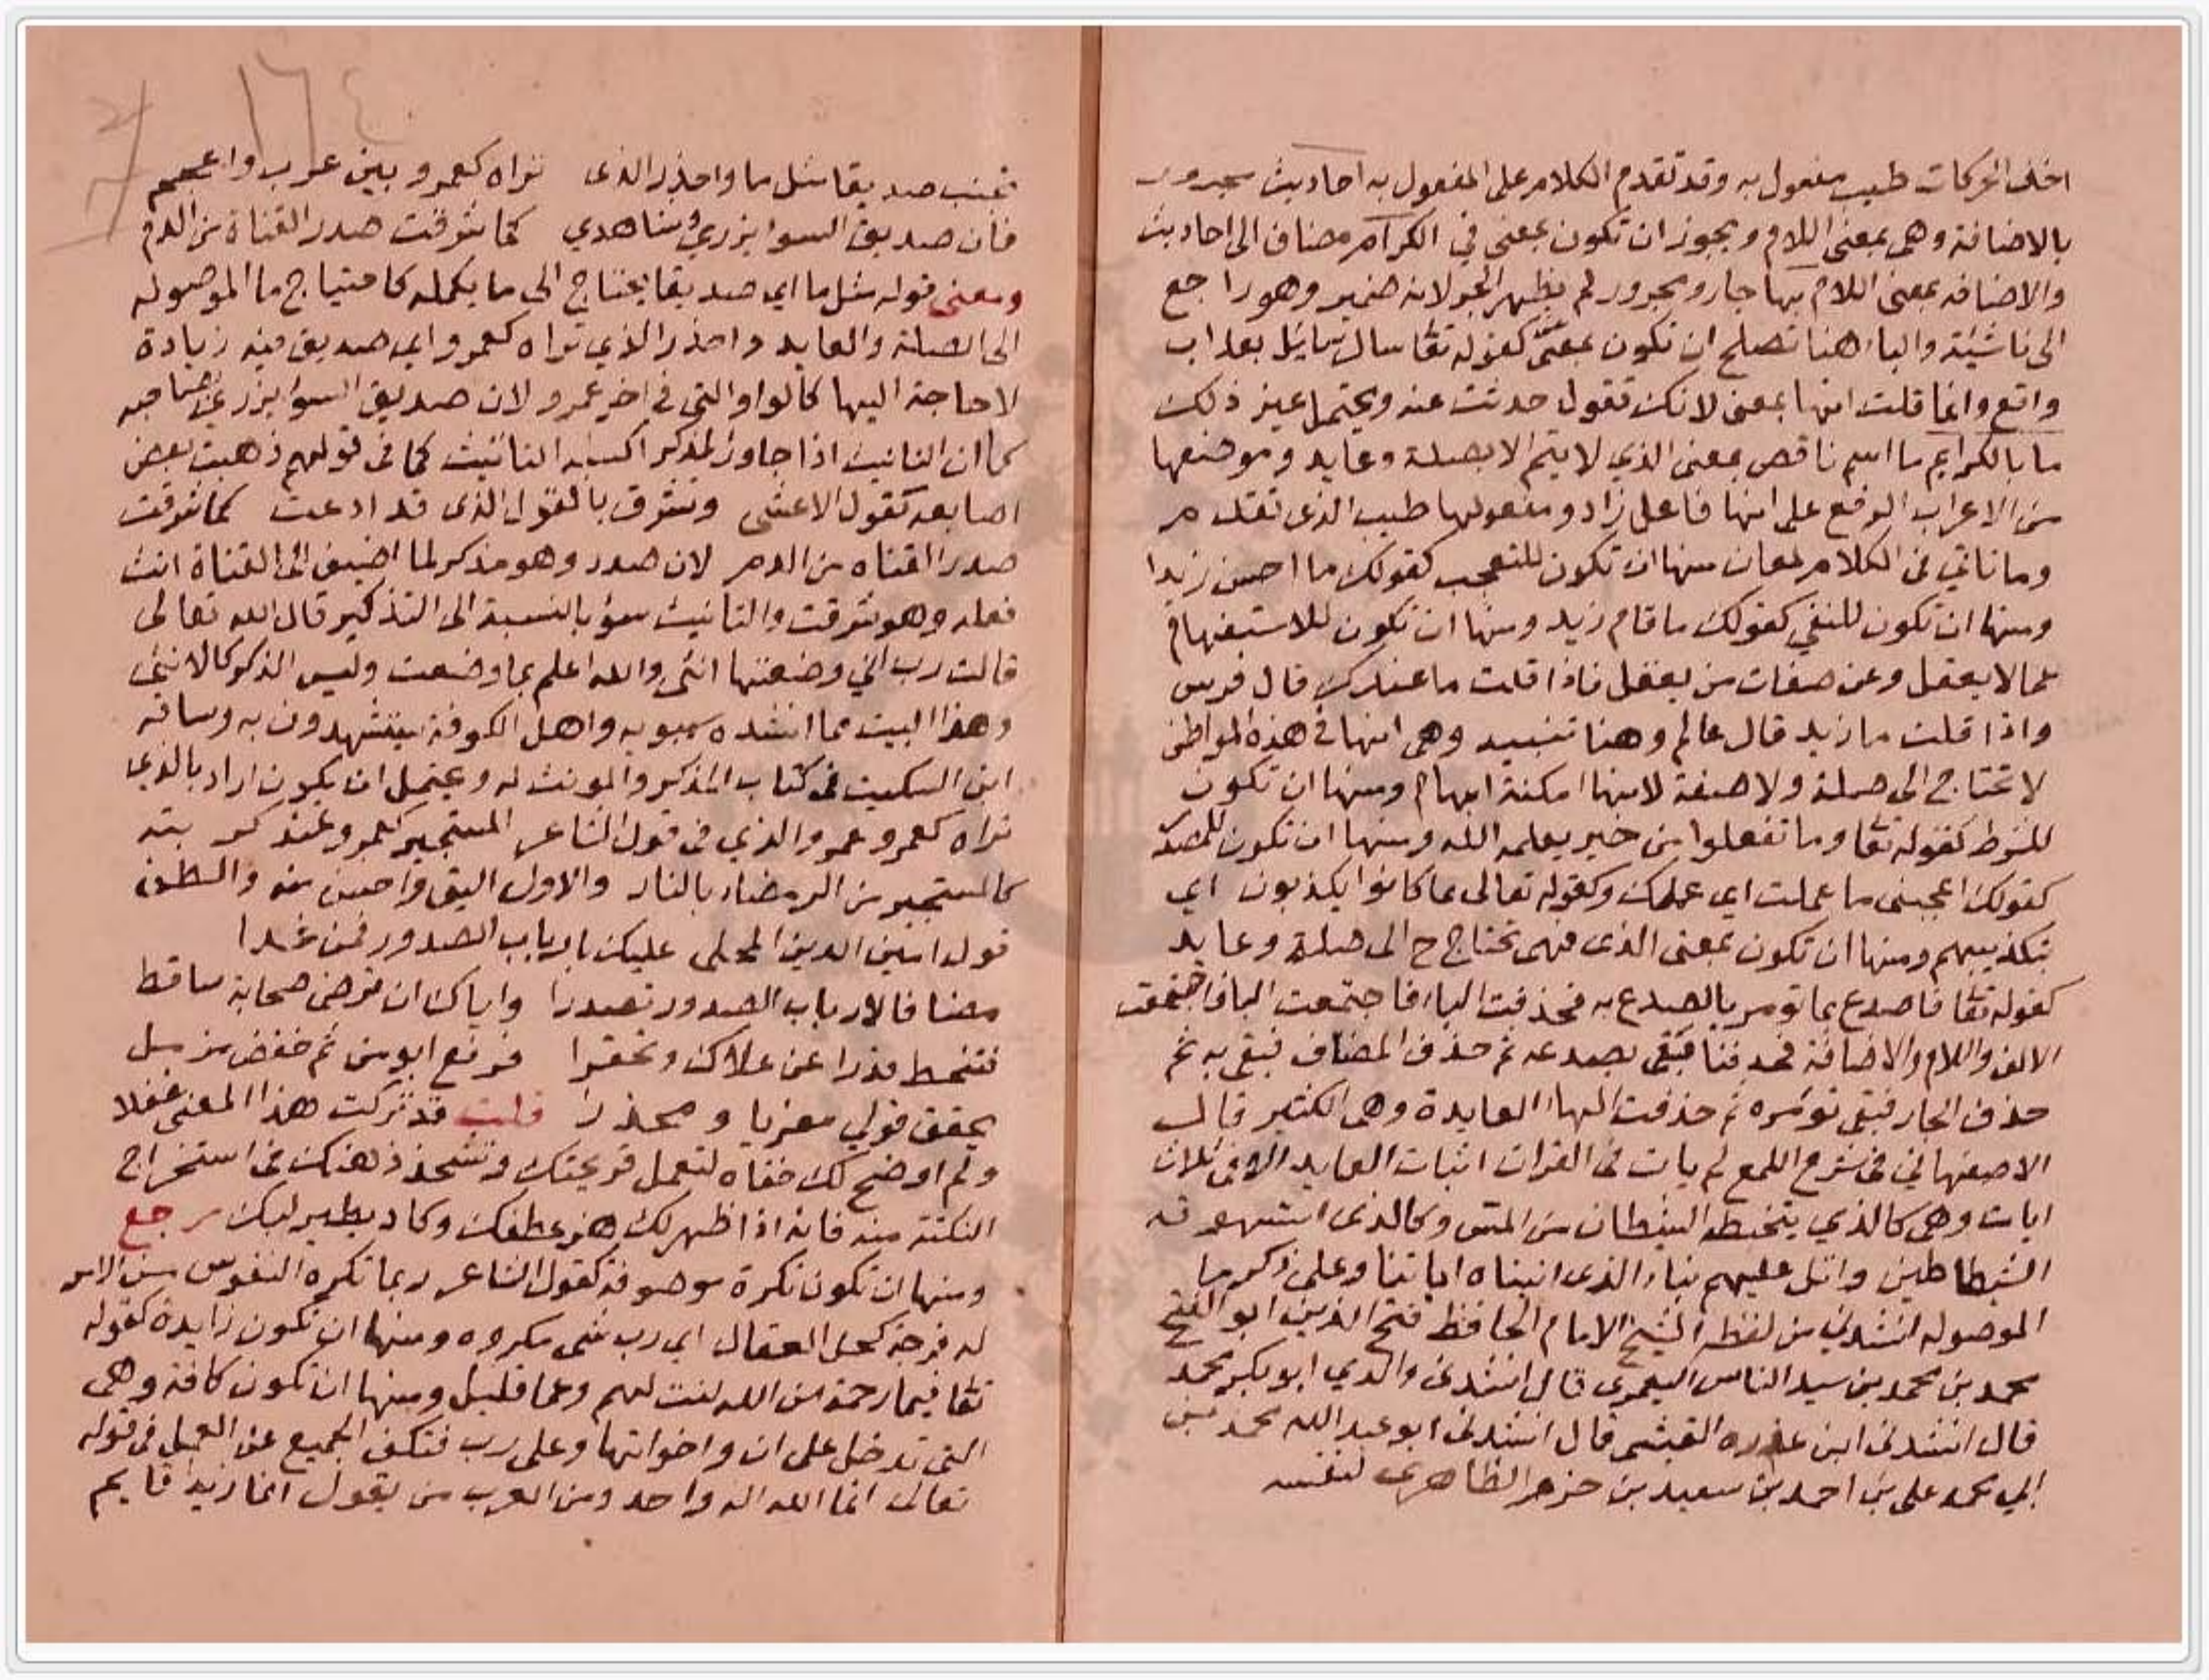 اخف الحركات طيب مفعول به وقد تقدم الكلام على المفعول به احاديث مجرور
بالاضافة وهى بمعنى اللام ويجوز ان تكون بمعنى في الكرام مضاف الى احاديث
والاضافه بمعنى اللام بها جار ومجرور لم يظهر الجر لانه ضمير وهو راجع
الى ناشئة والباء هنا تصلح ان تكون بمعنى عن كقوله تقا سال سايل بعذاب
واقع وانما قلت انها بمعنى لانك تقول حدثت عنه ويحتمل غير ذلك
ما بالكرايم ما اسم ناقص بمعنى الذي لا يتم الا بصلة وعايد وموضعها
من الاعراب الرفع على انها فاعل زاد ومفعولها طيب الذى تقدم
وما تاتي فى الكلام لمعان منها ان تكون للتعجب كقولك ما احسن زيدا
ومنها ان تكون للنفي كقولك ما قام زيد ومنها ان تكون للاستفهام
عما لا يعقل وعن صفات من يعقل فاذا قلت ما عندك قال فرس
واذا قلت ما زيد قال عالم وهنا تنبيه وهى انها فى هذه المواطن
لا تحتاج الى صلة ولا صفة لانها امكنة ابهام ومنها ان تكون
للشرط كقوله تقا وما تفعلوا من خير يعلمه الله ومنها ان تكون للمصدر
كقولك اعجبنى ما عملت اي عملك وكقوله تعالى بما كانوا يكذبون اي
بتكذيبهم ومنها ان تكون بمعنى الذى فهى تحتاج ح الى صلة وعايد
كقوله تقا فاصدع بما تومر بالصدع به فحذفت الباء فاجتمعت الباء فاجتمعت
الالف واللام والاضافة فحذفتا فبقى بصدعه ثم حذف المضاف فبقى به ثم
حذف الجار فبقى تؤمره ثم حذفت الهاء العايدة وهى الكثير قال
الاصفهاني فى شرح اللمع لم يات فى القران اثبات العايد الا فى ثلاث
ايات وهى كالذي يتخبطه الشيطان من المس وكالذى استهوته
الشياطين واتل عليهم نباء الذى اتيناه اياتنا وعلى ذكر ما
الموصوله انشدنى من لفظه الشيخ الامام الحافظ فتح الدين ابو الفتح
محمد بن محمد بن سيد الناس اليعمرى قال انشدنى والدي ابو بكر محمد
قال انشدنى ابن عذره القيشى قال انشدنى ابو عبد الله محمد بن
ابي محمد على بن احمد بن سعيد بن حزم الظاهرى لنفسه
تجنب صديقا مثل ما واحذر الذى تراه كعمرو بين عرب واعجم
فان صديق السوا يزري وشاهدي كما شرقت صدر القناة من الدم
ومعنى قوله مثل ما اي صديقا يحتاج الى ما يكمله كاحتياج ما الموصوله
الى الصلة والعايد واحذر الذي تراه كعمرو اي صديق فيه زيادة
لا حاجة اليها كالواو التى فى اخر عمرو لان صديق السوا يزرى بصاحبه
كما ان التانيث اذا جاور المذكر اكسبه التانيث كما فى قولهم ذهبت بعض
اصابعه كقول الاعشى وتشرق بالقول الذى قد ادعت كما شرقت
صدر القناه من الدم لان صدر وهو مذكر لما اضيف الى القناة انث
فعله وهو شرقت والتانيث سوء بالنسبة الى التذكير قال الله تعالى
قالت رب انى وضعتها انثى والله اعلم بما وضعت وليس الذكر كالانثى
وهذا البيت مما انشده سيبويه واهل الكوفة يستشهدون به وساقه
ابن السكيت فى كتاب المذكر والمونث له ويحتمل ان يكون اراد بالذي
تراه كعمرو عمرو الذي فى قول الشاعر المستجير بعمرو عند كربته
كالمستجير من الرمضاء بالنار والاول اليق واحسن منه والطف
قول امين الدين المحلى عليك بارباب الصدور فمن غدا
مضافا لارباب الصدور تصدرا واياك ان ترضى صحابة ساقط
فتنحط قدرا عن علاك وتحقرا فرفع ابو من ثم خفض مزمل
يحقق قولي مغريا ومحذرا قلت قد تركت هذا المعنى غفلا
ولم اوضح لك خفاه لتعمل قريحتك وتشحذ ذهنك فى استخراج
النكتة منه فانه اذا ظهر لك هز عطفك وكاد يطير لبك رجع
ومنها ان تكون نكرة موصوفة كقول الشاعر ربما تكره النفوس من الامر
له فرجة كحل العقال اي رب شى مكروه ومنها ان تكون زايدة كقوله
تقا فبما رحمة من الله لنت لهم وعما قليل ومنها ان تكون كافة وهى
التى تدخل على ان واخواتها وعلى رب فتكف الجميع عن العمل فى قوله
تعالى انما الله اله واحد ومن العرب من يقول انما زيدا قايم